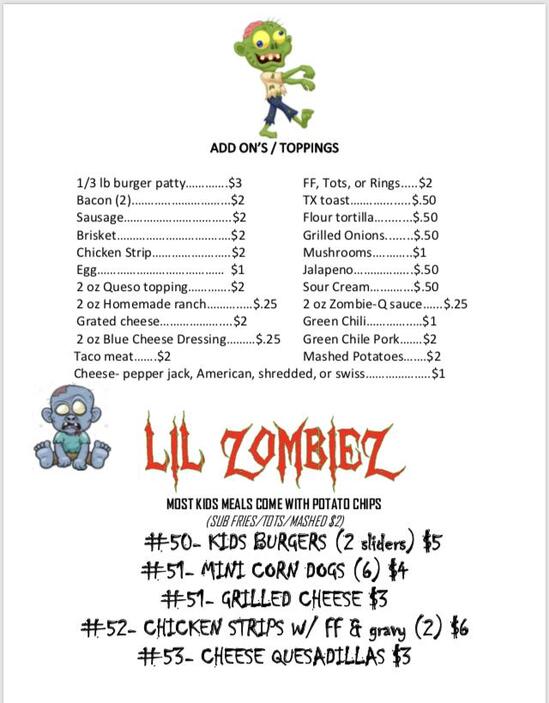 ADD ON'S / TOPPINGS
1/3 lb burger patty............$3
Bacon (2)..............................$2
Sausage................................$2
Brisket..................................$2
Chicken Strip........................$2
Egg.................................... $1
2 oz Queso topping.............$2
2 oz Homemade ranch.............$.25
Grated cheese......................$2
2 oz Blue Cheese Dressing.........$.25
Taco meat.......$2
FF, Tots, or Rings.....$2
TX toast..................$.50
Flour tortilla...........$.50
Grilled Onions........$.50
Mushrooms............$1
Jalapeno.................$.50
Sour Cream............$.50
2 oz Zombie-Q sauce......$.25
Green Chili................$1
Green Chile Pork.......$2
Mashed Potatoes.......$2
Cheese- pepper jack, American, shredded, or swiss....................$1
LIL ZOMBIEZ
MOST KIDS MEALS COME WITH POTATO CHIPS
(SUB FRIES/TOTS/MASHED $2)
#50- KIDS BURGERS (2 sliders) $5
#51- MINI CORN DOGS (6) $4
#51- GRILLED CHEESE $3
#52- CHICKEN STRIPS W/ FF & gravy (2) $6
#53- CHEESE QUESADILLAS $3